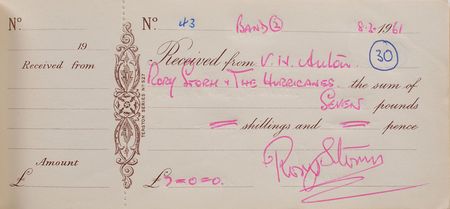 Nº
19
Received from
Amount
£
TEASTON SERIES Nº 527
Nº 43 BAND ② 8-2-1961
Received from V. H. Anton. 30
RORY STORM + THE HURRICANES. the sum of
SEVEN pounds
shillings and pence
Rory Storm
£ =0=0.